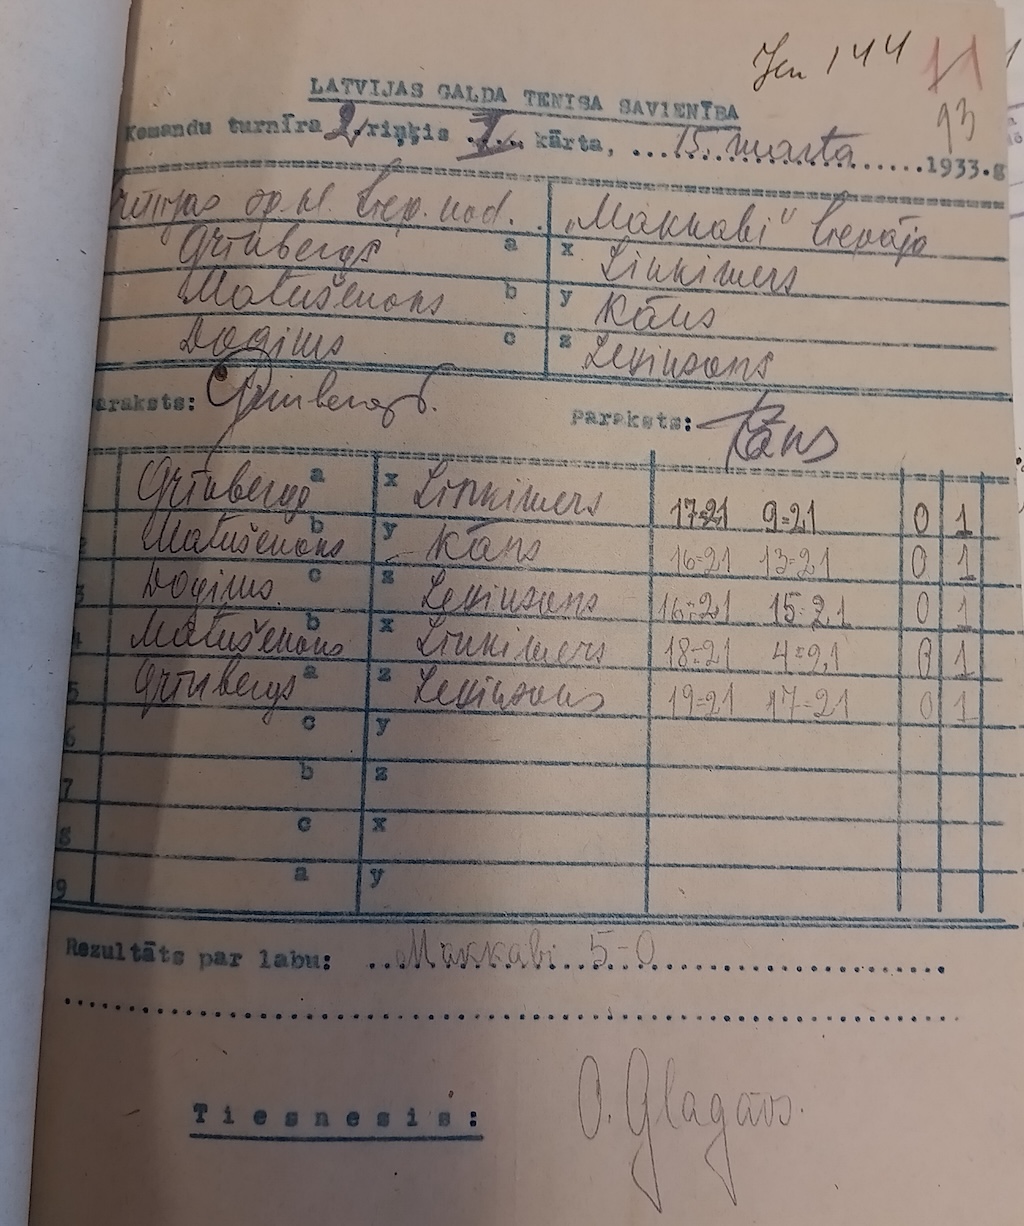 Jen 144 11
93
LATVIJAS GALDA TENISA SAVIENĪBA
Komandu turnīra 2. riņķis I. kārta, ...15. marta......1933.g
op.kl. Liep. nod. „Makkabi" Liepājā
Grīnbergs a x Linkimers
Matušenoks b y Kāns
Dogims c z Levinsons
Paraksts: Grinbergs. Paraksts: Kāns
Grīnbergs a x Linkimers 17=21 9=21 0 1
Matušenoks b y Kāns 16=21 13=21 0 1
3 Dogims c z Levinsons 16=21 15=21 0 1
4 Matušenoks b x Linkimers 18=21 4=21 0 1
5 Grīnbergs a z Levinsons 19=21 17=21 0 1
6 c y
7 b z
8 c x
9 a y
Rezultāts par labu: ..Makkabi..5-0..................
Tiesnesis: O. Glagavs.